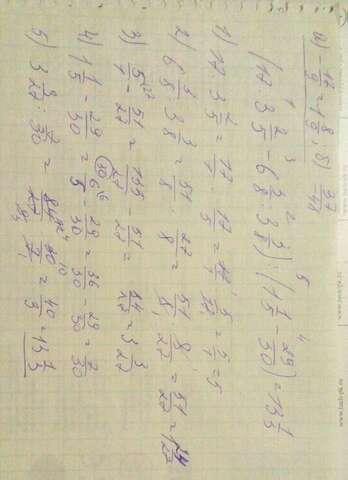 a) -17/9 = -1 8/9; б) 27/41
(17 : 3 2/5 - 6 3/8 : 3 3/8) : (1 1/5 - 29/30) = 13 1/3
1) 17 : 3 2/5 = 17/1 : 17/5 = 17/1 · 5/17 = 5/1 = 5
2) 6 3/8 : 3 3/8 = 51/8 : 27/8 = 51/8 · 8/27 = 51/27 = 1 24/27
3) 5/1 - 51/27 = 135/27 - 51/27 = 84/27 = 3 3/27
4) 1 1/5 - 29/30 = 6/5 - 29/30 = 36/30 - 29/30 = 7/30
5) 3 3/27 : 7/30 = 84/27 · 30/7 = 40/3 = 13 1/3